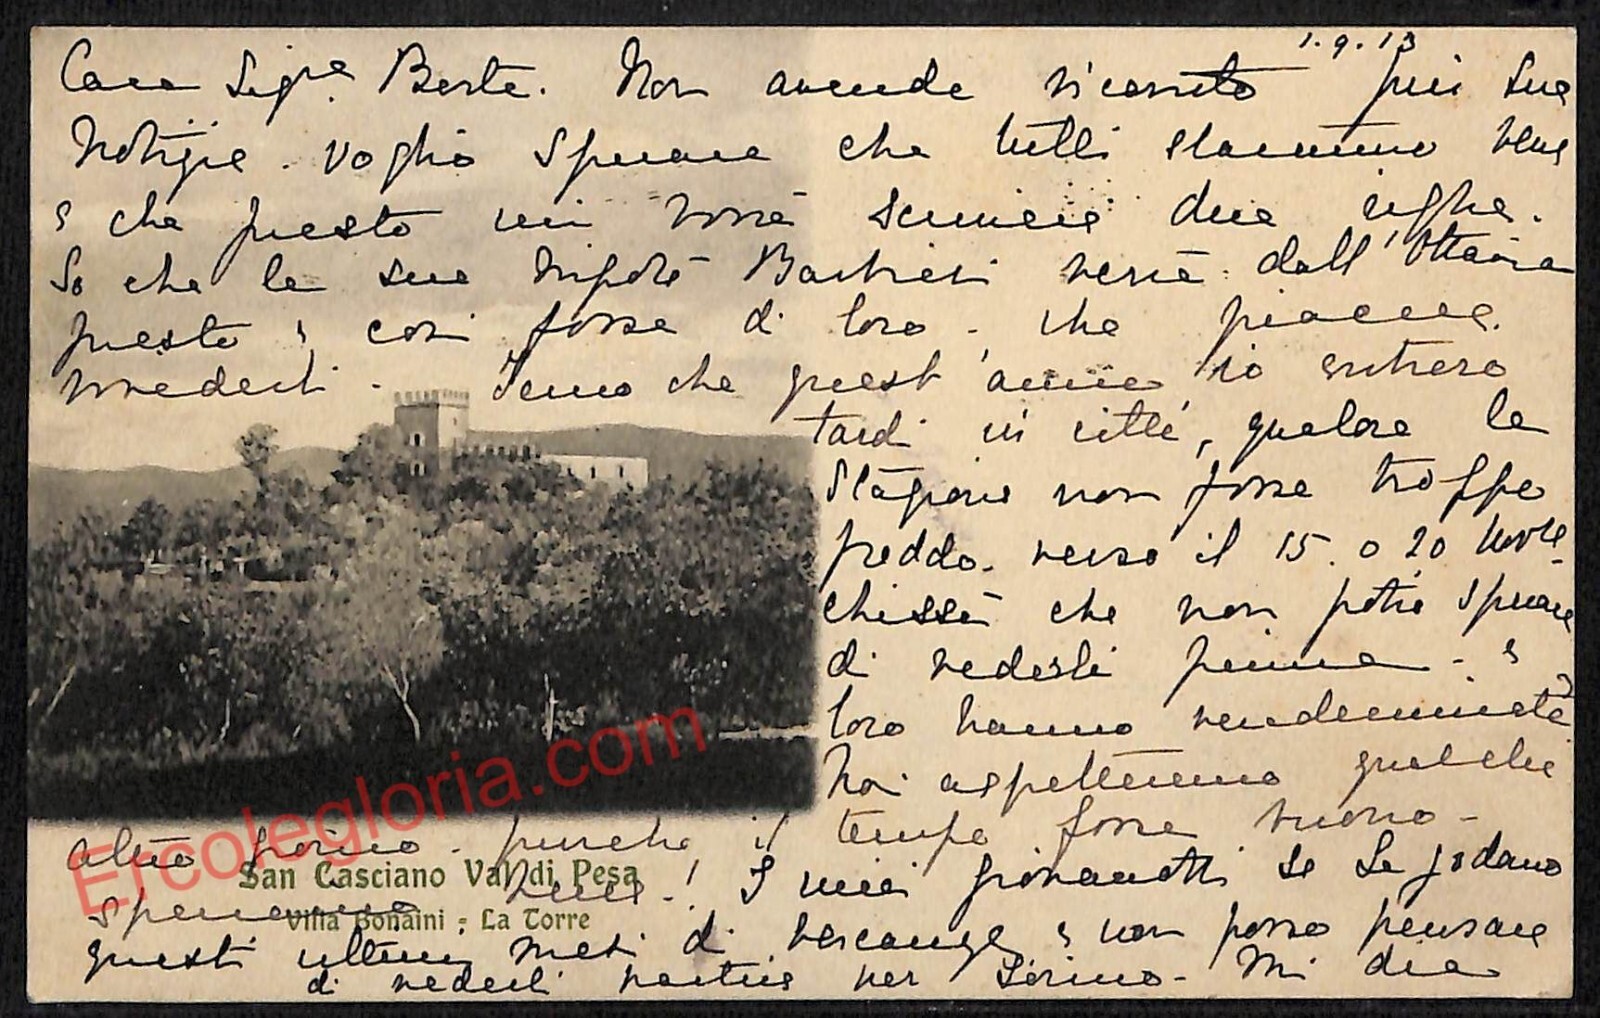 1.9.13
Cara Sig.ra Berta. Non avendo ricevuto più Sue
Notizie. voglio sperare che tutti staranno bene
e che presto mi vorrà scrivere due righe.
So che la sua nipote Barbieri verrà dall'
presto e così forse di loro, che piacere
rivederli. Temo che quest'anno io entrerò
tardi in città, qualora la
stagione non fosse troppo
fredda. verso il 15. o 20 Nov.re
chissà che non potrò sperare
di vederli prima. e
loro hanno vendemmiato
Noi aspetteremo qualche
altro giorno. purché il tempo fosse buono.
San Casciano Val di Pesa
speriamo bene! I miei giovanotti se la godano
Villa Bonaini - La Torre
questi ultimi mesi di vacanze e non posso pensare
di vederli partire per Torino. Mi dia
Ercolegloria.com